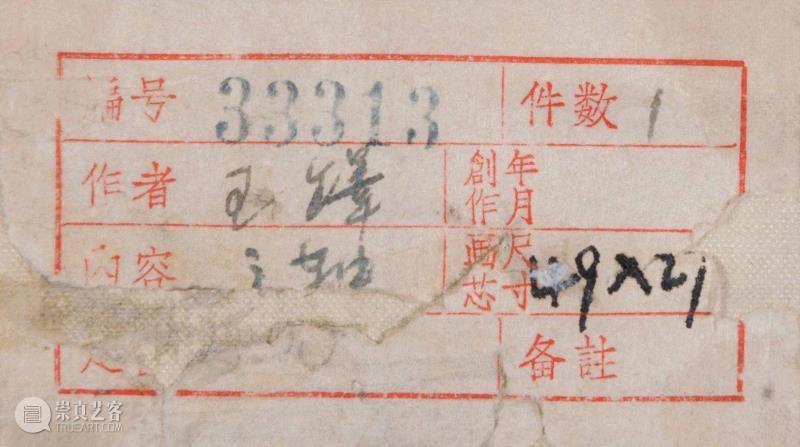 編号 33313 件数 1
作者 王 創作年月
内容 画芯尺寸 49X21
备註
崇真艺客
TRUEART.COM